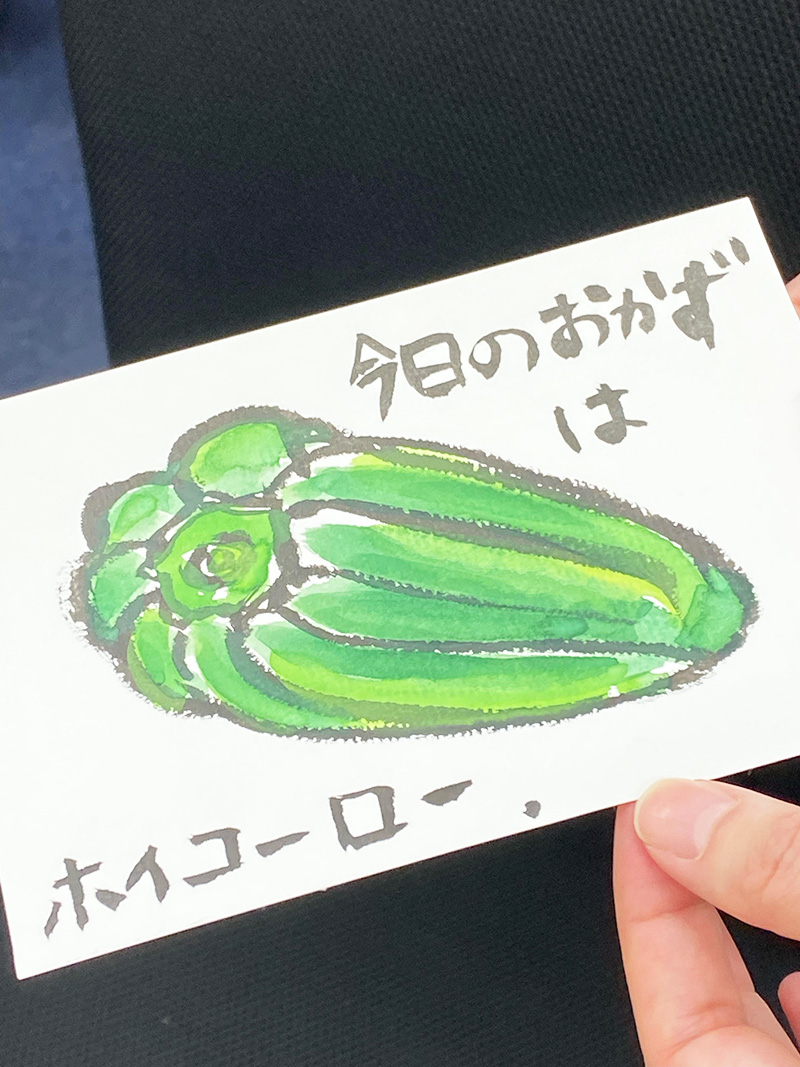 今日のおかず
は
ホイコーロー.